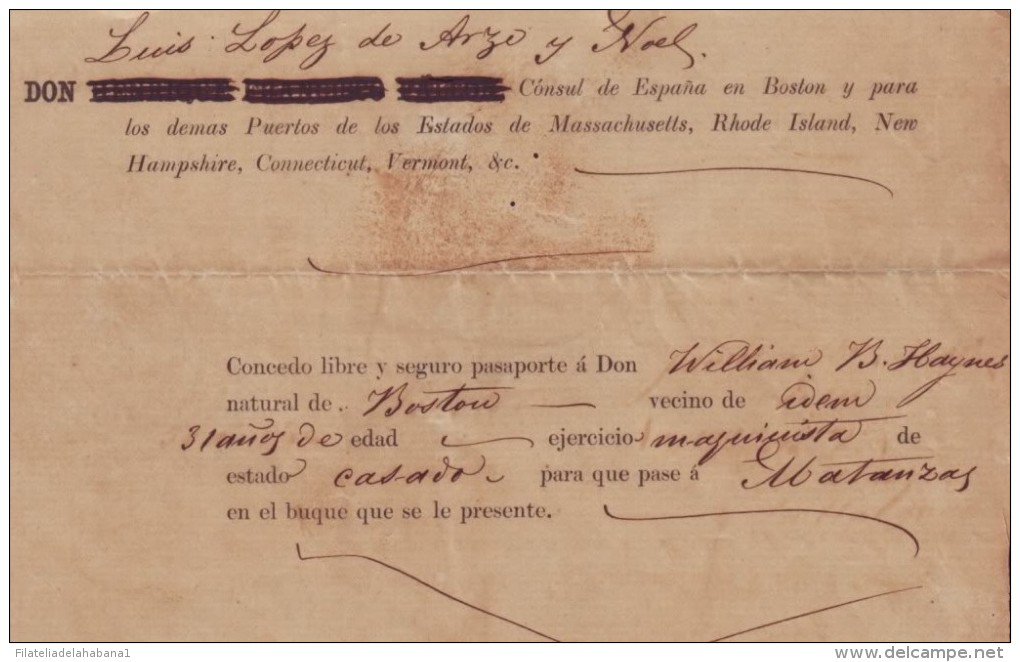 Luis Lopez de Arze y Noel.
DON Cónsul de España en Boston y para
los demas Puertos de los Estados de Massachusetts, Rhode Island, New
Hampshire, Connecticut, Vermont, &c.
Concedo libre y seguro pasaporte á Don William B. Haynes
natural de Boston — vecino de idem
31 años de edad ejercicio maquinista de
estado casado para que pase á Matanzas
en el buque que se le presente.
Filateliadelahabana1
www.delcampe.net